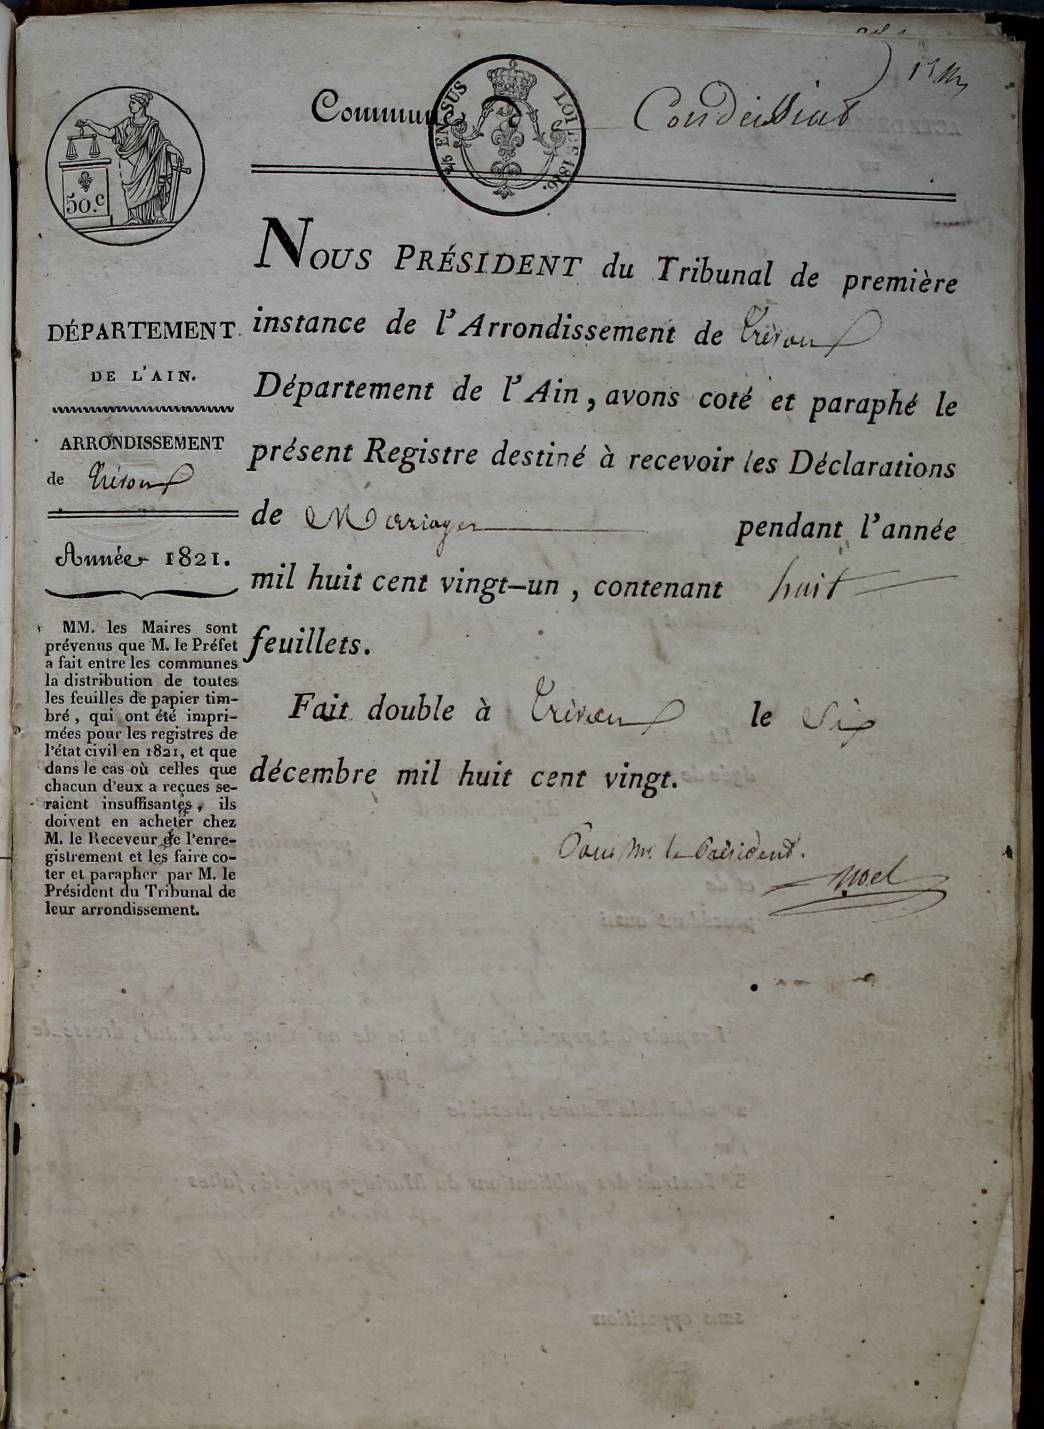 Commune
Condeissiat
1er
50.c
EN SUS
LOI DE 1816.
DÉPARTEMENT
DE L'AIN.
ARRONDISSEMENT
de Trévoux
Année 1821.
MM. les Maires sont
prévenus que M. le Préfet
a fait entre les communes
la distribution de toutes
les feuilles de papier tim-
bré, qui ont été impri-
mées pour les registres de
l'état civil en 1821, et que
dans le cas où celles que
chacun d'eux a reçues se-
raient insuffisantes, ils
doivent en acheter chez
M. le Receveur de l'enre-
gistrement et les faire co-
ter et parapher par M. le
Président du Tribunal de
leur arrondissement.
NOUS PRÉSIDENT du Tribunal de première
instance de l'Arrondissement de Trévoux
Département de l'Ain, avons coté et paraphé le
présent Registre destiné à recevoir les Déclarations
de Mariages pendant l'année
mil huit cent vingt-un, contenant huit
feuillets.
Fait double à Trévoux le Six
décembre mil huit cent vingt.
Pour Mr. le Président.
Noel